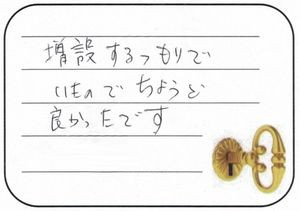 増設するつもりで
いたのでちょうど
良かったです